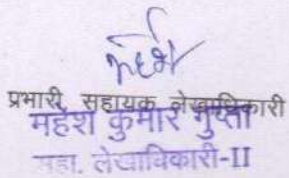 महेश
प्रभारी सहायक लेखाधिकारी
महेश कुमार गुप्ता
सहा. लेखाधिकारी-II